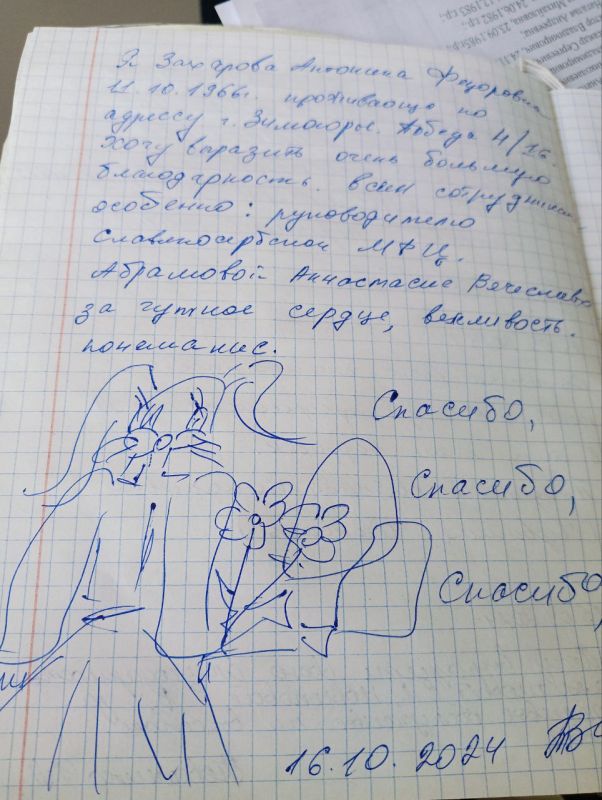 Я Захарова Антонина Федоровна
11.10.1966г. проживающа по
адрессу г. Зимогорье. Победа 4/16.
Хочу выразить очень большую
благодарность. всем сотрудникам,
особенно: руководителю
Славяносербском МФЦ.
Абрамовой Анастасие Вечеславовне
за чуткое сердце, вежливость.
понемание.
Спасибо,
Спасибо,
Спасибо,
16.10.2024